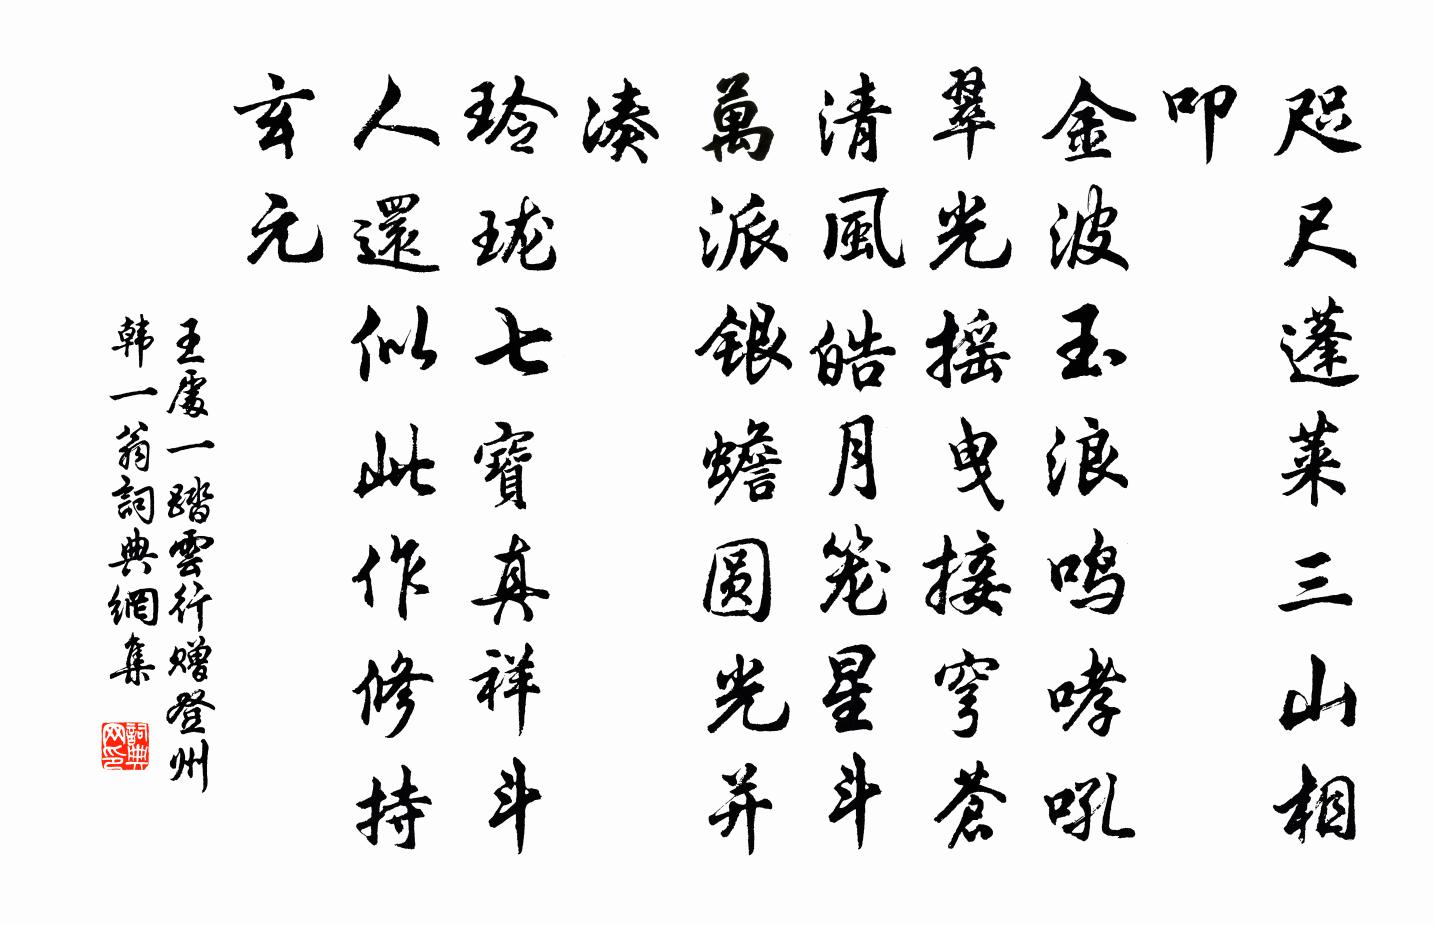 咫尺蓬莱三山相
叩
金波玉浪鸣哮吼
翠光摇曳接穹蒼
清風皓月笼星斗
萬派银蟾圆光并
湊
玲珑七寶真祥斗
人還似此作修持
玄元
王處一踏雲行赠登州
韩一翁詞典網集
詞典网印